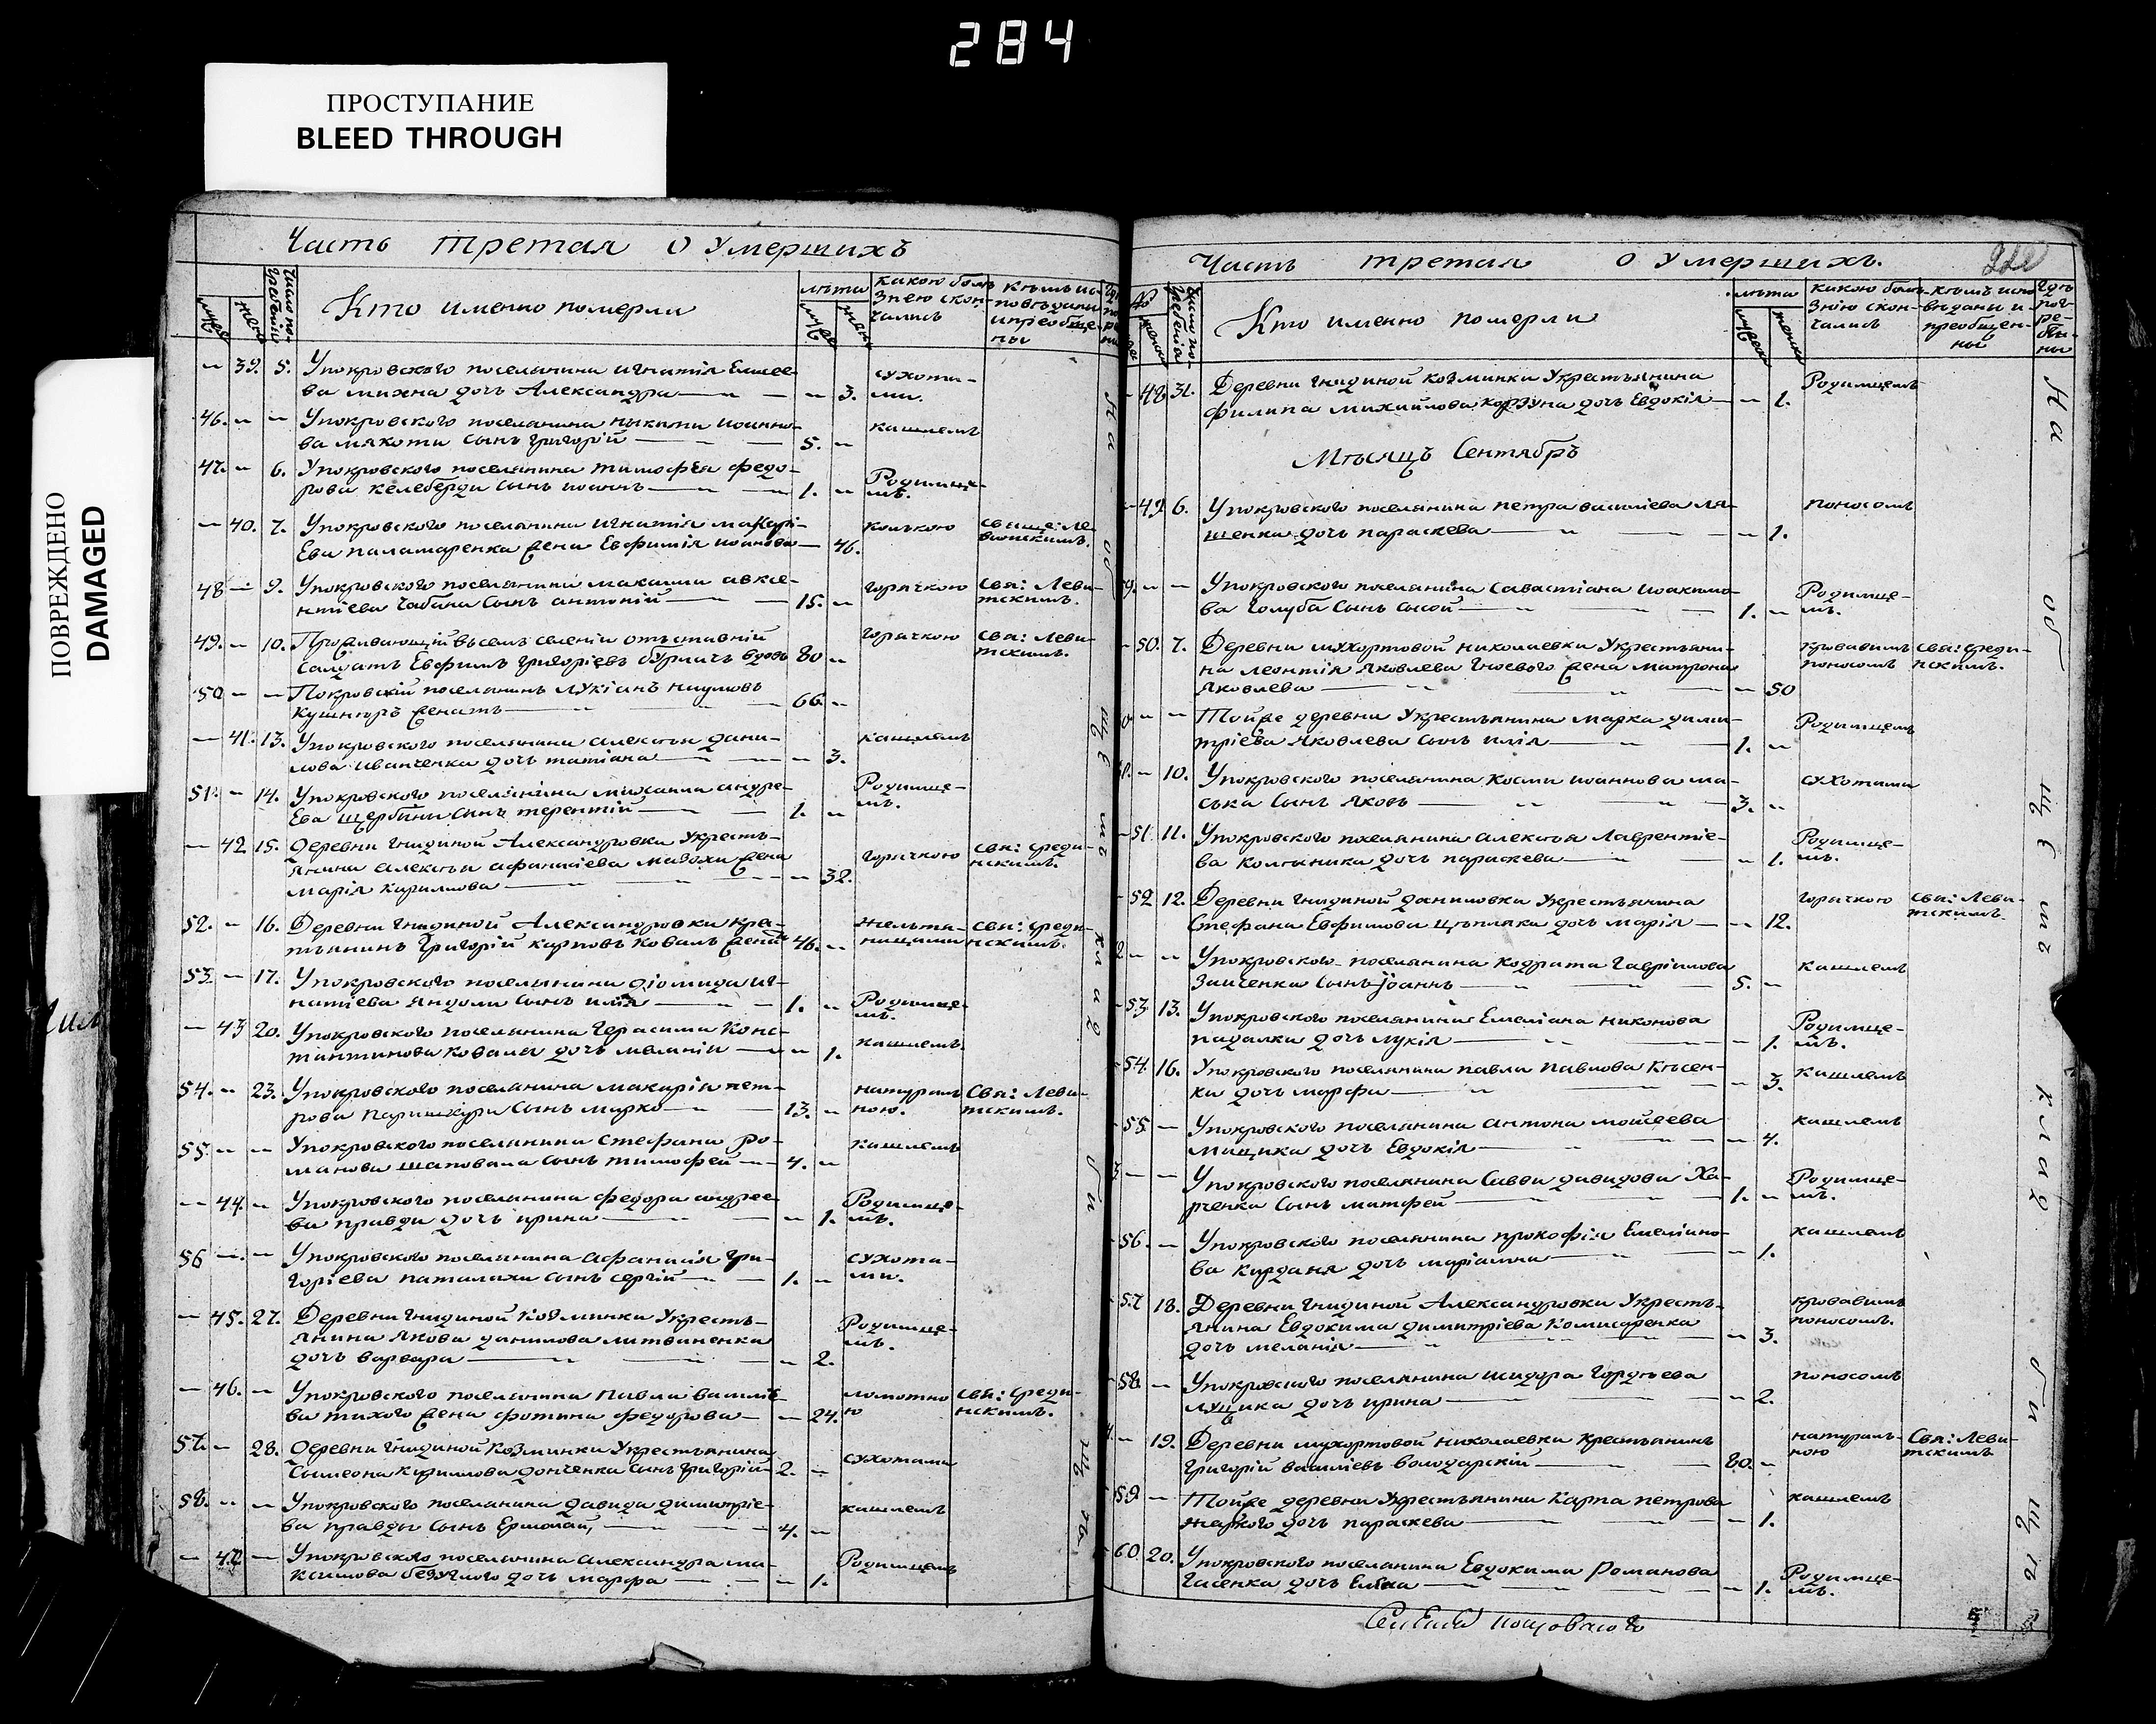 284
ПРОСТУПАНИЕ
BLEED THROUGH
ПОВРЕЖДЕНО
DAMAGED
Часть третая о умершихъ
Кто именно померли
лѣта
Какою болѣ-
знею скон-
чались
39. 5. Упокровского поселянина игнатія
дочь Александра — 3.
сухота-
ми.
46. Упокровского поселянина никити иоанно-
ва мякоти сынъ григорій — 5.
кашлемъ
47. 6. Упокровского поселянина тимофея федо-
рова келеберди сынъ иоаннъ — 1.
Родимце-
мъ.
40. 7. Упокровского поселянина игнатія макарі-
ева паламаренка жена Евфимія иоанова — 46.
колькою
48 9. Упокровского поселянина максима авксе-
нтіева чабана сынъ антоній — 15.
горячкою Свя: Леви-
тскимъ.
49. 10. Проживающій въ семъ селеніи отъставній
салдатъ Евфимъ григоріевъ бурмичъ вдовъ 80
горячкою Свя: Леви-
тскимъ.
50 Покровскій поселянинъ лукіанъ наумовъ
кушниръ женатъ — 66.
41. 13. Упокровского поселянина алексѣя дани-
лова иванченка дочь татіана — 3.
кашлемъ
51. 14. Упокровского поселянина михаила андре-
ева щербини сынъ терентій — 1.
Родимце-
мъ.
42 15. Деревни гнидиной Александровки Укресть-
янина алексѣя афанасіева жена
марія кирилова — 32.
горячкою Свя: среди-
нскимъ.
52. 16. Деревни гнидиной Александровки крес-
тьянинъ григорій карповъ коваль женатъ 46.
Желтя-
ницами Свя: среди-
нскимъ.
53. 17. Упокровского поселянина діомида иг-
натіева яндоли сынъ илія — 1.
Родимце-
мъ.
43 20. Упокровского поселянина герасима конс-
тантинова коваля дочь меланія — 1.
кашлемъ.
54. 23. Упокровского поселянина макарія пет-
рова сынъ марко — 13.
натураль-
ною. Свя: Леви-
тскимъ.
55. Упокровского поселянина стефана ро-
манова шаповала сынъ тимофей — 4.
кашлемъ
44. Упокровского поселянина федора андрее-
ва правди дочь ирина — 1.
Родимце-
мъ.
56 Упокровского поселянина афанасія гри-
горіева паталахи сынъ сергій — 1.
сухота-
ми.
45. 27. Деревни гнидиной козминки Укресть-
янина якова данилова литвиненка
дочь варвара — 2.
Родимце-
мъ.
46. Упокровского поселянина павла василіе-
ва тихого жена фотина федорова — 24.
ломотно
ю Свя: среди-
нскимъ.
57. 28. Деревни гнидиной козминки Укрестьянина
сымеона кирилова донченка сынъ григорій 2.
сухотами
58. Упокровского поселянина давида димитріе-
ва правди сынъ Ермолай, — 4.
кашлемъ
47. Упокровского поселянина александра ма-
ксимова безуглого дочь марфа — 1.
Родимцемъ
На общемъ кладбищѣ.
Часть третая о умершихъ.
Кто именно померли
лѣта
Какою болѣ-
знію скон-
чались
Кѣмъ испо-
вѣдани и
преобщен-
ны
Гдѣ
пог-
ре-
бе-
ны
48 31. Деревни гнидиной козминки Укрестьянина
филипа михайлова корзуна дочь Евдокія — 1.
Родимцемъ
Мѣсяцъ Сентябрь
49 6. Упокровского поселянина петра василіева ля-
шенка дочь параскева — 1.
поносомъ
Упокровского поселянина савастіана иоакимо-
ва голуба сынъ сысой — 1.
Родимце-
мъ.
50. 7. Деревни мухортовой николаевки Укрестьяни-
на леонтія яковлева гноевого жена матрона
яковлева — 50
кровавимъ
поносомъ Свя: среди-
нскимъ.
Тойже деревни Укрестьянина марка дими-
тріева яковлева сынъ илія — 1.
Родимцемъ
10. Упокровского поселянина косми иоаннова ма-
ська сынъ яковъ — 3.
сухотами
51 11. Упокровского поселянина алексѣя лаврентіе-
ва дочь параскева — 1.
Родимце-
мъ.
52 12. Деревни гнидиной даниловки Укрестьянина
стефана Евфимова дочь марія — 12.
горячкою Свя: Леви-
тскимъ.
Упокровского поселянина кодрата гавріилова
заиченка сынъ іоаннъ — 5.
кашлемъ
53 13. Упокровского поселянина Емеліана никонова
падалки дочь лукія — 1.
Родимце-
мъ.
54. 16. Упокровского поселянина павла павлова ксѣн-
ки дочь марфа — 3.
кашлемъ
55. Упокровского поселянина антона моисеева
мищика дочь Евдокія — 4.
кашлемъ
Упокровского поселянина савви давидова ха-
рченка сынъ матфей — 1.
Родимце-
мъ.
56. Упокровского поселянина прокофія Емеліано-
ва кирданя дочь маріамна — 1.
кашлемъ
57 18. Деревни гнидиной Александровки Укресть-
янина Евдокима димитріева комисаренка
дочь меланія — 3.
кровавимъ
поносомъ.
58. Упокровского поселянина исидора гордѣева
лущика дочь ирина — 2.
поносомъ
19. Деревни мухортовой николаевки крестьянинъ
григорій василіевъ володарскій — 80.
натураль-
ною Свя: Леви-
тскимъ
59. Тойже деревни Укрестьянина карпа петрова
жаркого дочь параскева — 1.
кашлемъ
60 20. Упокровского поселянина Евдокима романова
гасенка дочь Елена — 1.
Родимце-
мъ.
На общемъ кладбищѣ